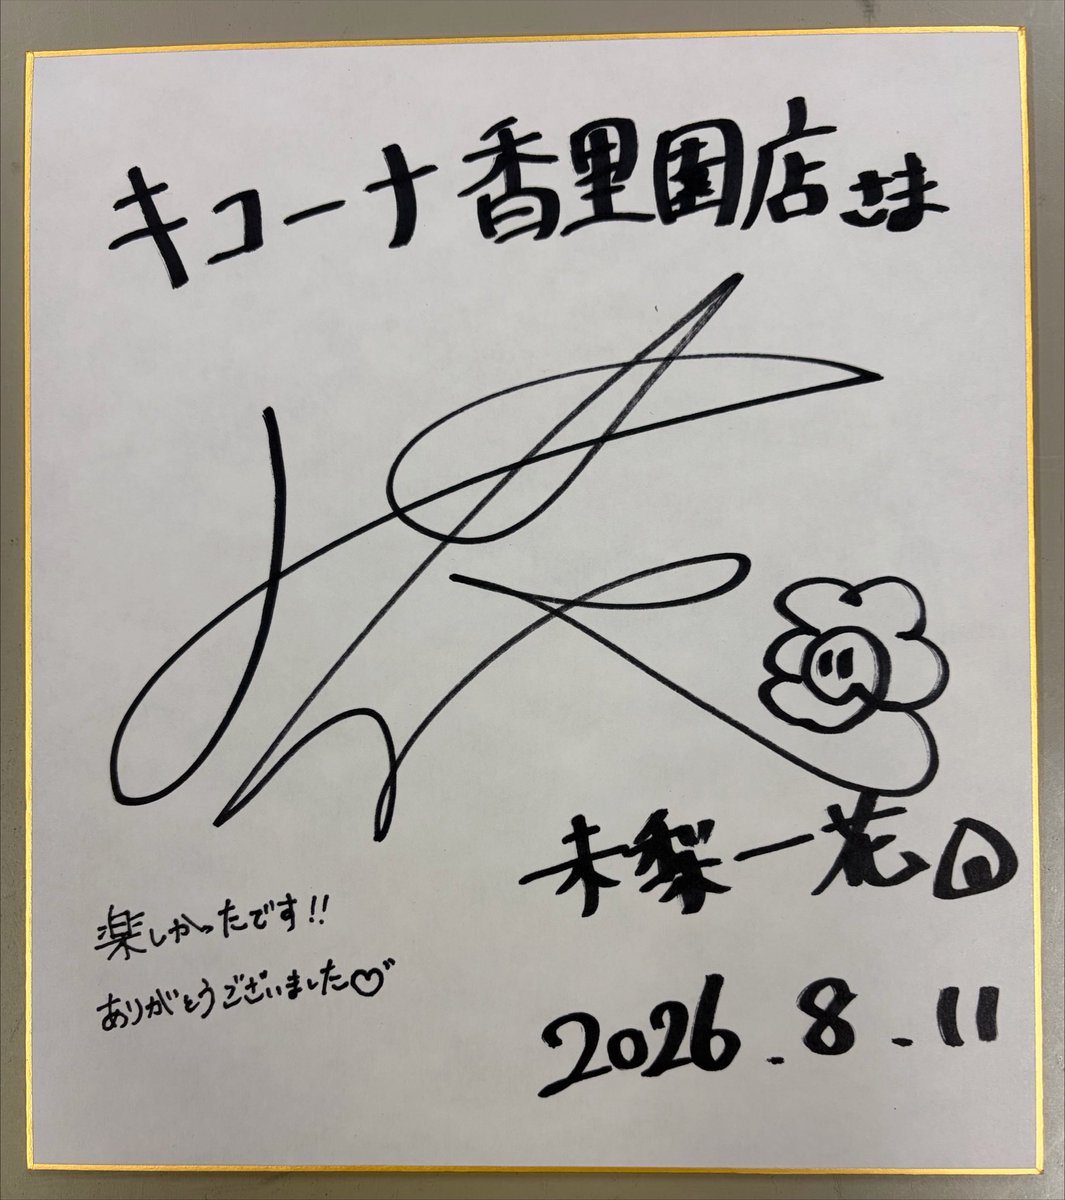 キコーナ香里園店さま
未梨一花
楽しかったです!!
ありがとうございました♡
2026.8.11